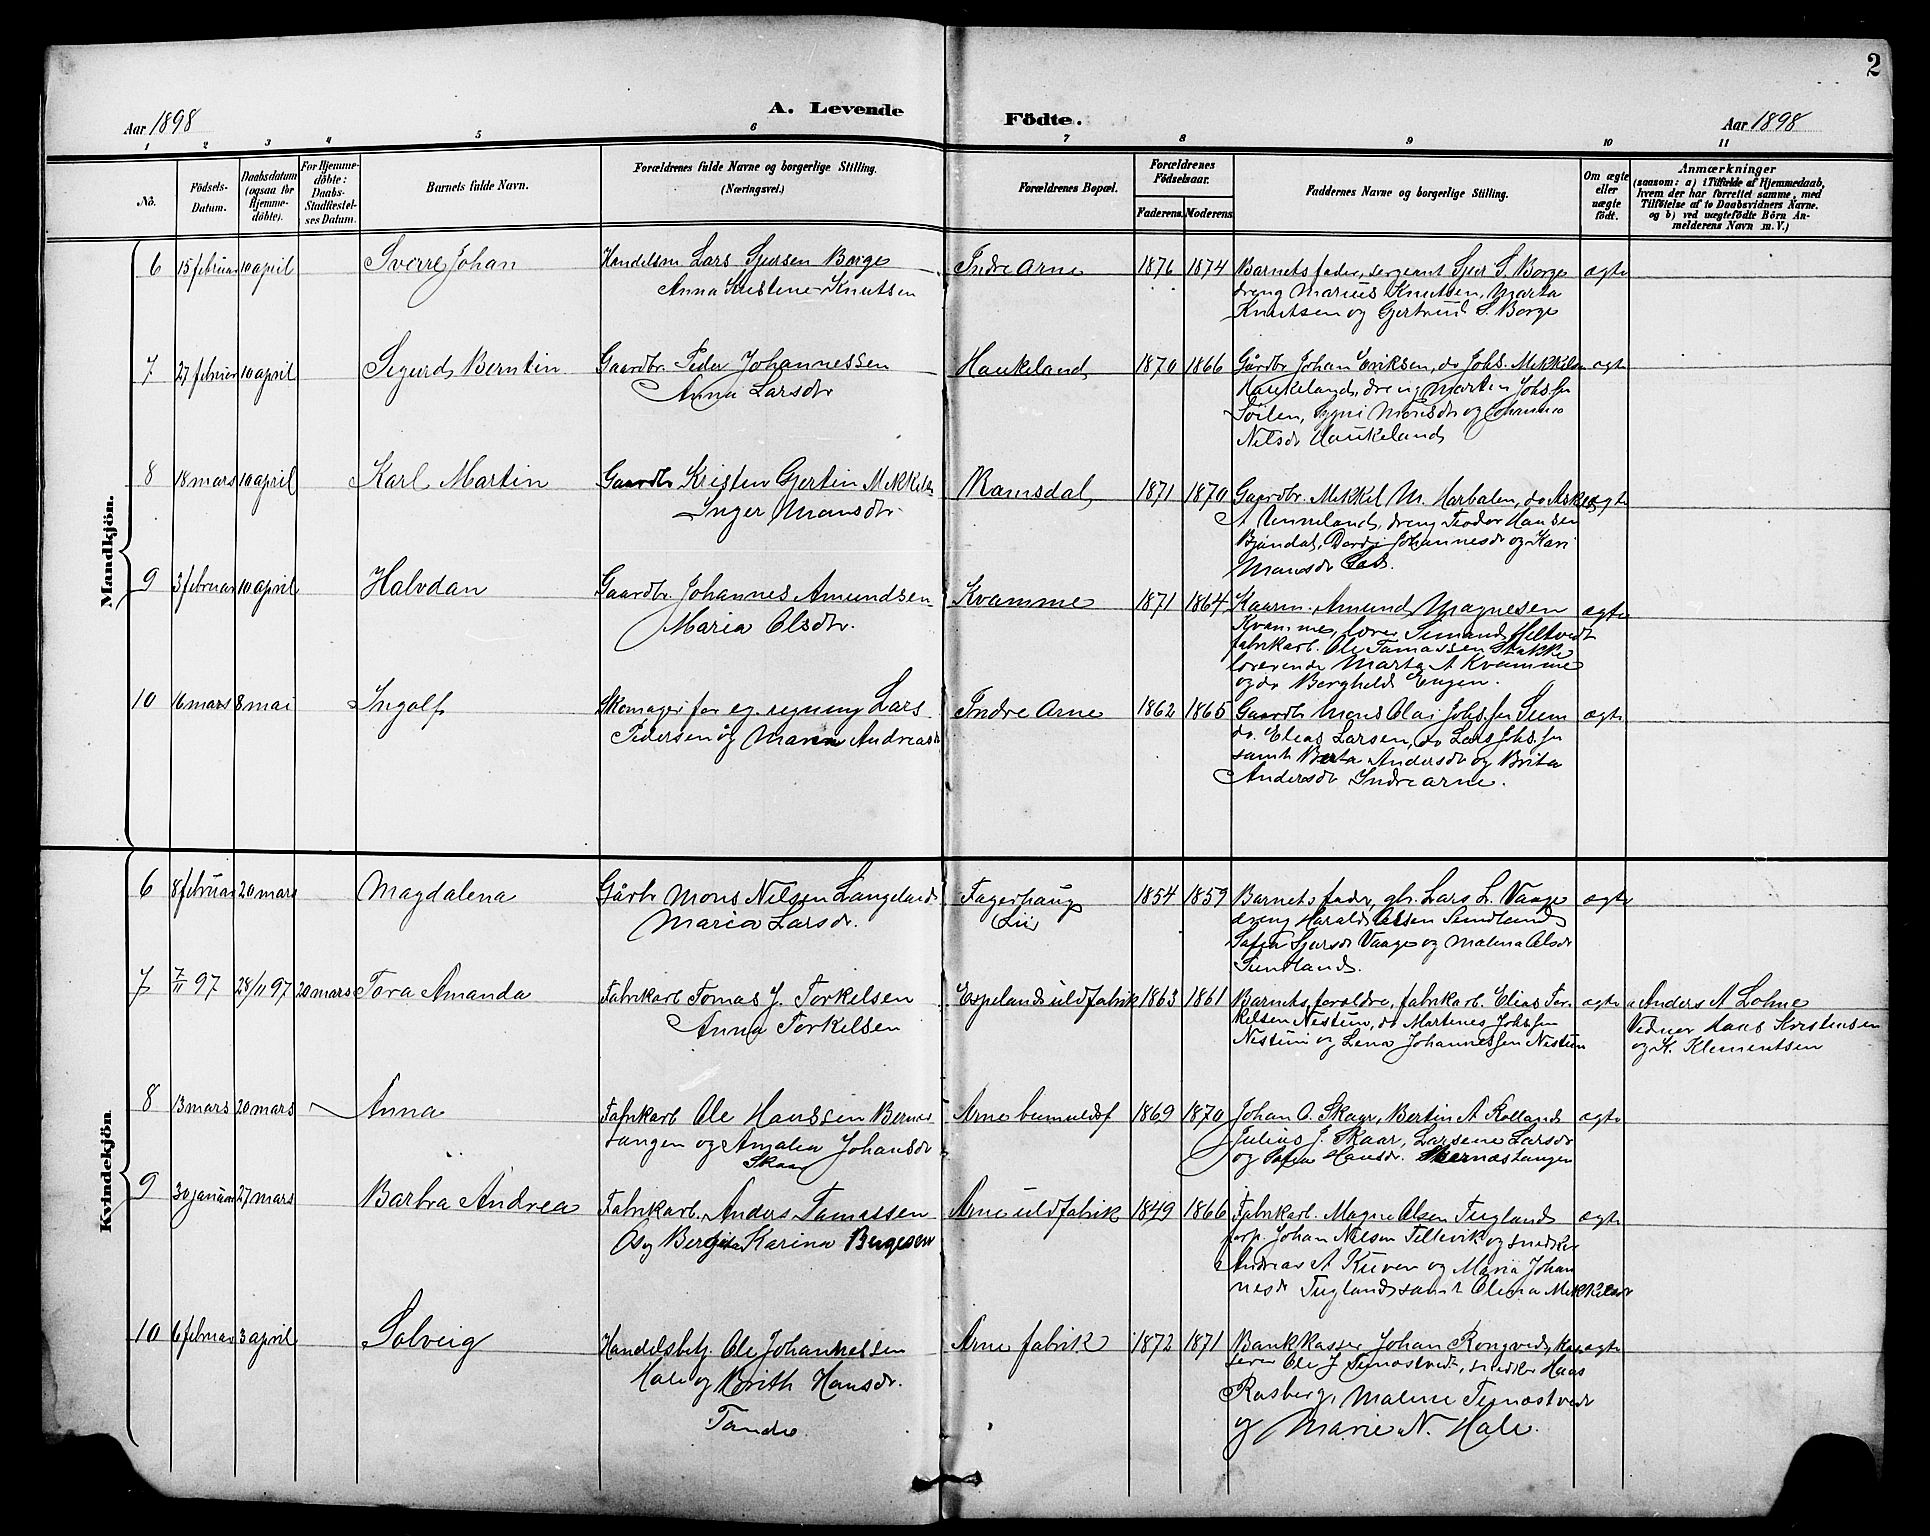 2
A. Levende Födte.
Aar 1898
Aar 1898
1 2 3 4 5 6 7 8 9 10 11
No.
Födsels-Datum.
Daabsdatum (ogsaa for Hjemme-döbte).
For Hjemme-döbte: Daabs-Stadfæstel-ses Datum.
Barnets fulde Navn.
Forældrenes fulde Navne og borgerlige Stilling. (Næringsvei.)
Forældrenes Bopæl.
Forældrenes Födselsaar.
Faderens. Moderens.
Faddernes Navne og borgerlige Stilling.
Om ægte eller uægte födt.
Anmærkninger
(saasom: a) i Tilfælde af Hjemmedaab,
hvem der har forrettet samme, med
Tilföielse af to Daabsvidners Navne.
og b) ved uægtefödte Börn An-
melderens Navn m. V.)
Mandkjön.
6 15 februar 10 april Sverre Johan Handelsm Lars Sjursen Borge Indre Arne 1876 1874 Barnets fader, sergeant Sjur S. Borge ægte
Anna Kristene Knutsen dreng Marius Knutsen, Marta
Knutsen og Gertrud S. Borge
7 27 februar 10 april Sigurd Berntin Gaardbr. Peder Johannessen Haukeland 1870 1866 Gårdbr Johan Eriksen, do Johs. Mikkelsen ægte
Anna Larsdtr Haukeland, dreng Martin Johs.sen
Monsdr og Johanna
Nilsdr Haukeland
8 18 mars 10 april Karl Martin Gaardbr Kristen Gjertin Mikkels Ramsdal 1871 1870 Gaardbr. Mikkel M. Harbalen, do ægte
Inger Monsdtr. A Unneland, dreng Teodor Hansen
Bjøndal, Johannesdr og Kari
Monsdr
9 3 februar 10 april Halvdan Gaardbr Johannes Amundsen Kvamme 1871 1864 Kaarm. Amund Magnesen ægte
Maria Olsdtr. Kvamme, lærer
fabrikarb. Ole Tomassen Stakke
Marta A Kvamme
og do Borghild Engen.
10 6 mars 8 mai Ingolf Skomager for eg. regning Lars Indre Arne 1862 1865 Gaardbr Mons Olai Johs.sen ægte
Pedersen og Maria Andreasdr do. Elias Larsen, do Lars Johs.sen
samt Berta Andersdr og Brita
Andersdr Indre arne.
Kvindekjön.
6 8 februar 20 mars Magdalena Gårbr Mons Nilsen Langeland Fagerhaug 1854 1859 Barnets fader, gbr. Lars L. Vaage ægte
Maria Larsdr. Lii dreng Harald Olsen Sundland
Sofia Sjursdr Vaage og Malena Olsdr
7 7/11 97 28/11 97 20 mars Tora Amanda Fabrikarb Tomas J. Torkelsen Espelands uldfabrik 1863 1861 Barnets foreldre, fabrikarb. Elias Tor- ægte a Anders A Lohne
Anna Torkelsen kelsen Nestun, do Martenes Johs.sen Vidner Hans Kristensen
Nestun og Lena Johannessen Nestun og K. Klementsen
8 13 mars 20 mars Anna Fabrikarb Ole Hanssen Bernes Arne bumuldsf 1869 1870 Johan O. Skaar, Bertin A Rolland ægte
tangen og Amalia Johansdr Julius J. Skaar, Larsene Larsdr
Skaar og Sofia Hansdr. Bernæstangen
9 30 januar 27 mars Barbra Andrea Fabrikarb. Anders Tomassen Arne uldfabrik 1849 1866 Fabrikarb. Magne Olsen Tugland ægte
Os og Bergita Karina Birgesen Johan Nilsen Tellevik og snedker
Andreas A Kuven og Maria Johan
nesdr Tugland samt Olena Mikkelsdr
10 6 februar 3 april Solveig Handelsbetj. Ole Johannessen Arne fabrik 1872 1871 Bankkasser Johan Rongved, kas- ægte
Hole og Brith Hansdr. serer Ole J Tunestvedt, snedker Hans
Tande Rosberg, Malene Tunestvedt
og Marie N. Hole.